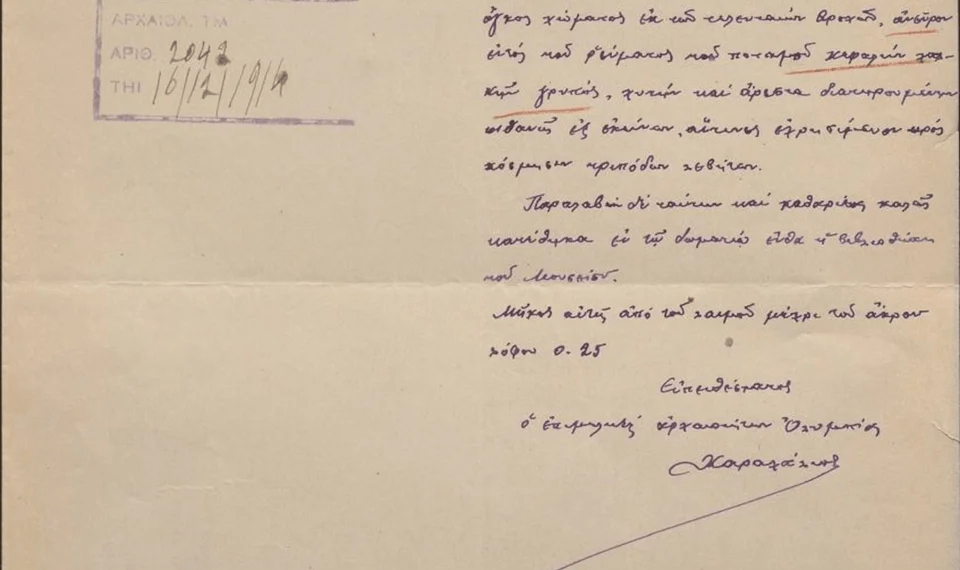 ΑΡΧΑΙΟΛ. ΤΜ
ΑΡΙΘ. 2042
ΤΗΙ 16/12/1914
ὄγκος χώματος ἐκ τῶν τελευταίων βροχῶν, ἀνεῦρον
ἐντός τοῦ ῥεύματος τοῦ ποταμοῦ κεφαλήν χαλ-
κῆν γρυπός, χυτήν καί ἄριστα διατηρουμένην
πιθανῶς ἐξ ἐκείνων, αἵτινες ἐχρησίμευον πρός
κόσμησιν τριπόδων λεβήτων.
Παραλαβών δέ ταύτην καί καθαρίσας καλῶς
κατέθηκα ἐν τῷ δωματίῳ ἔνθα ἡ βιβλιοθήκη
τοῦ Μουσείου.
Μῆκος αὐτῆς ἀπό τοῦ λαιμοῦ μέχρι τοῦ ἄκρου
λόφου 0.25
Εὐπειθέστατος
ὁ ἐπιμελητής ἀρχαιοτήτων Ὀλυμπίας